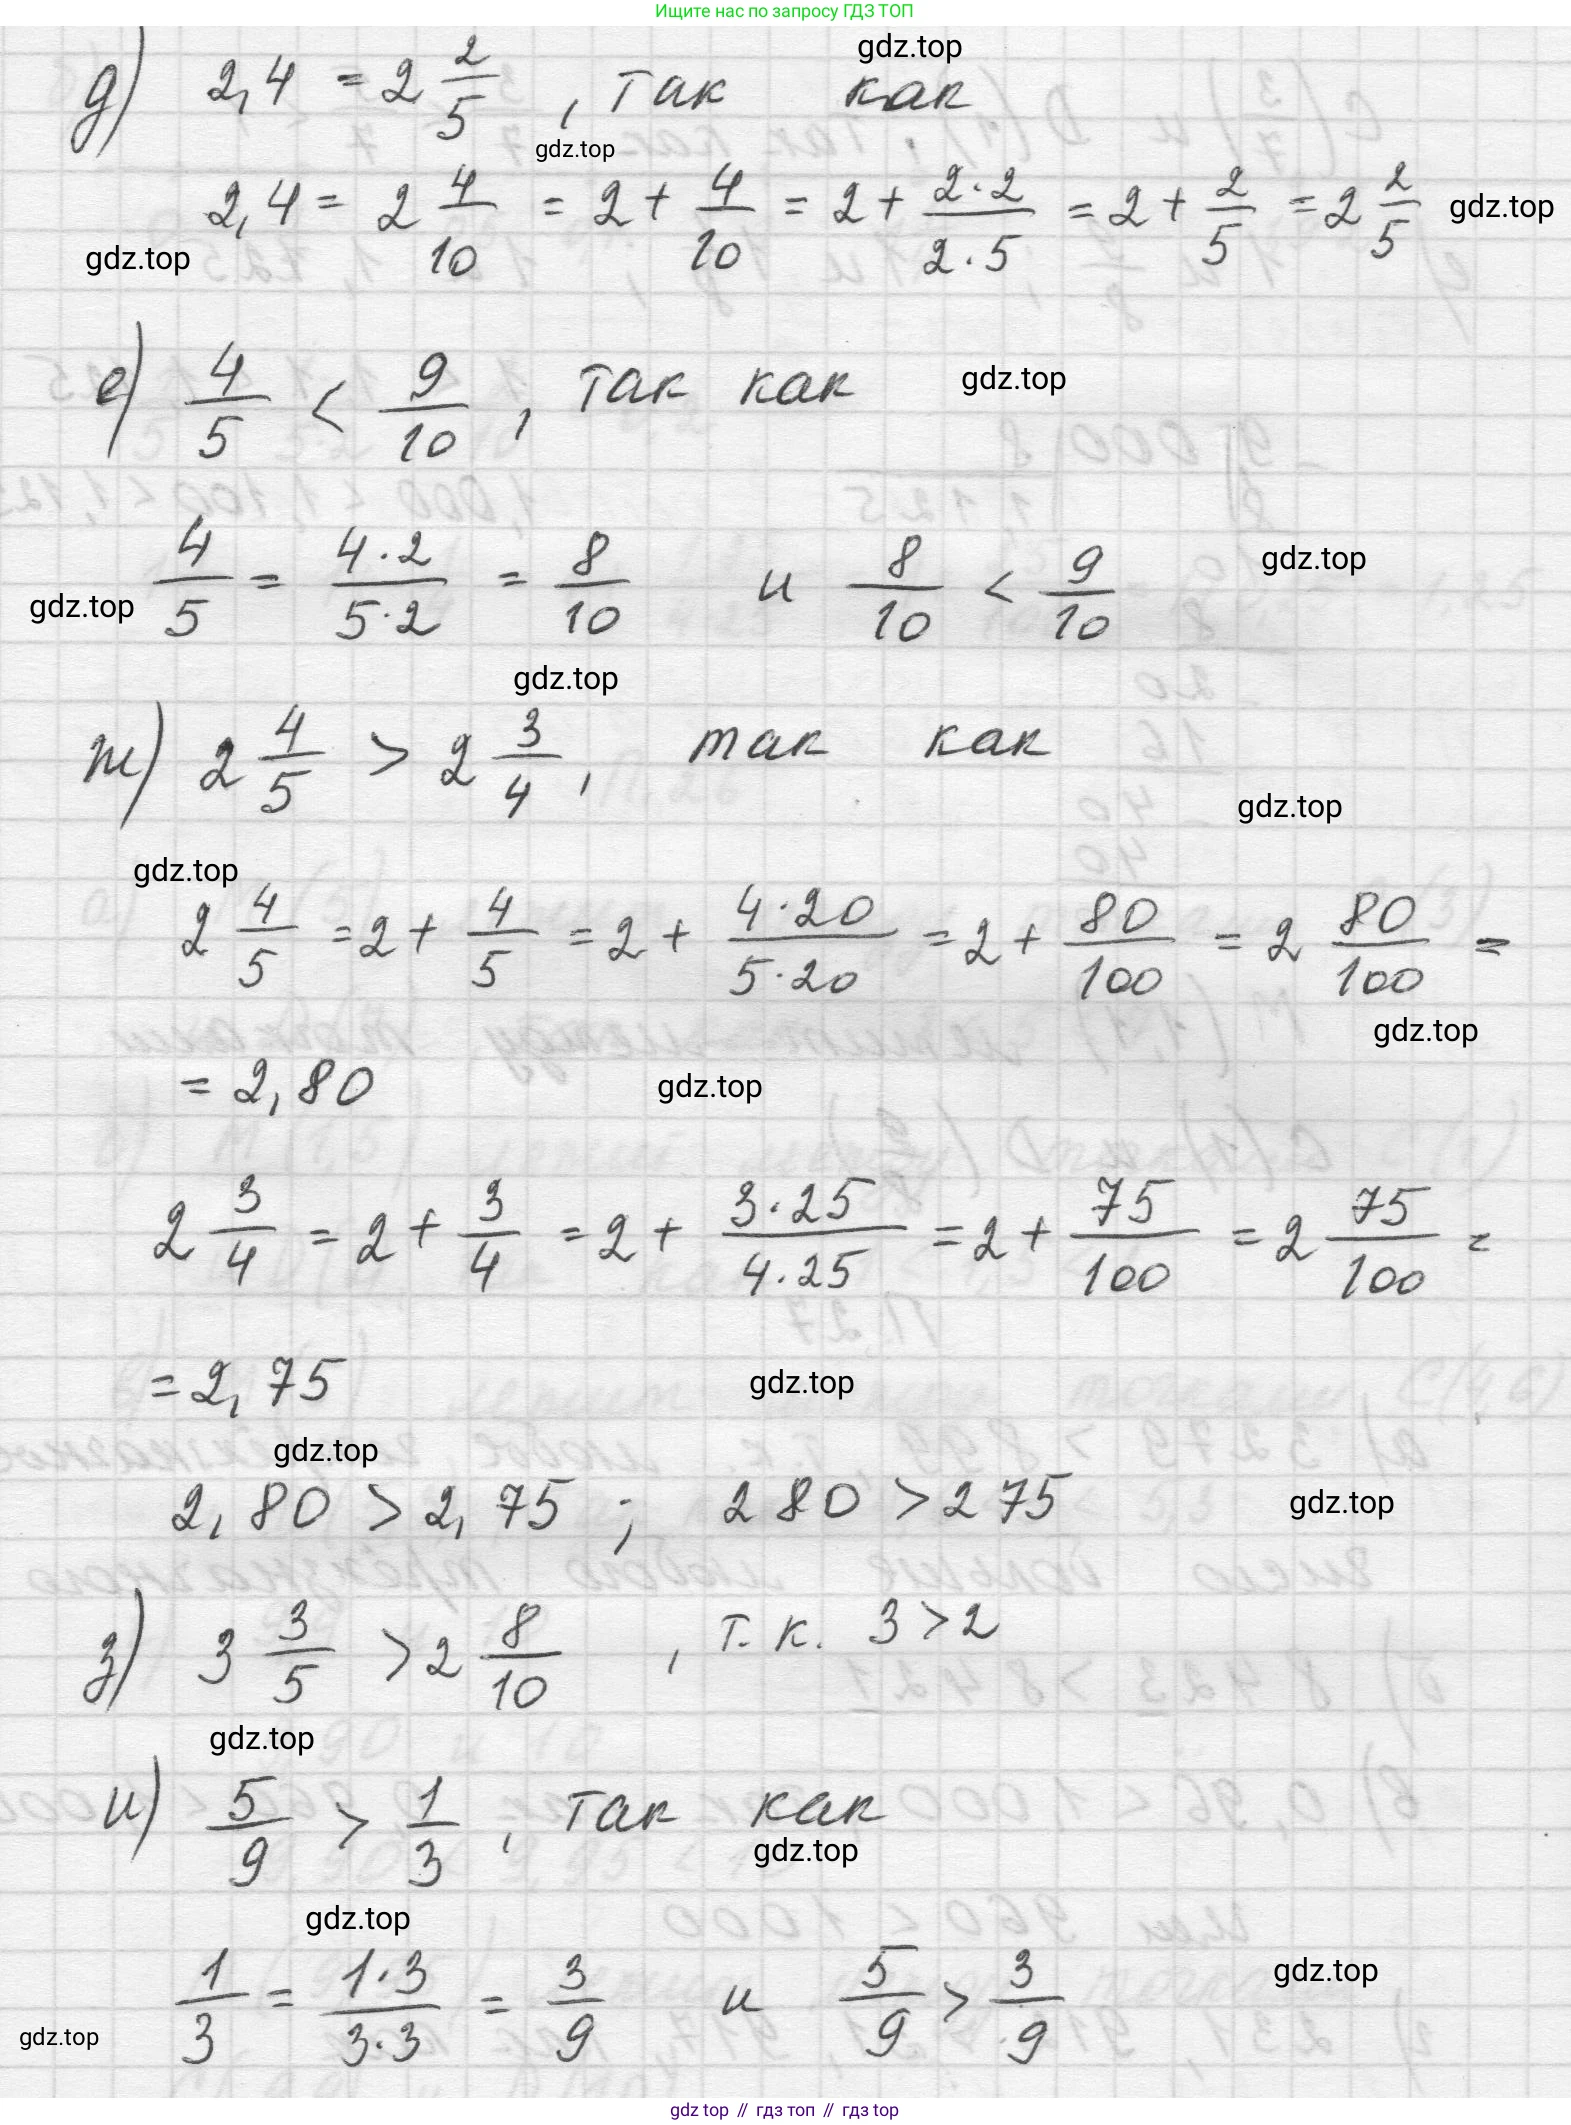 Ищите нас по запросу ГДЗ ТОП
gdz.top
д) 2,4 = 2 2/5, так как
gdz.top
2,4 = 2 4/10 = 2 + 4/10 = 2 + 2·2/2·5 = 2 + 2/5 = 2 2/5 gdz.top
gdz.top
е) 4/5 < 9/10, так как gdz.top
4/5 = 4·2/5·2 = 8/10 и 8/10 < 9/10 gdz.top
gdz.top
gdz.top
ж) 2 4/5 > 2 3/4, так как
gdz.top
gdz.top
2 4/5 = 2 + 4/5 = 2 + 4·20/5·20 = 2 + 80/100 = 2 80/100 =
gdz.top
= 2,80 gdz.top
2 3/4 = 2 + 3/4 = 2 + 3·25/4·25 = 2 + 75/100 = 2 75/100 =
= 2,75 gdz.top
gdz.top
2,80 > 2,75 ; 280 > 275 gdz.top
з) 3 3/5 > 2 8/10, т.к. 3 > 2
gdz.top
и) 5/9 > 1/3, так как
gdz.top
gdz.top
1/3 = 1·3/3·3 = 3/9 и 5/9 > 3/9 gdz.top
gdz.top
gdz top // гдз топ // гдз top